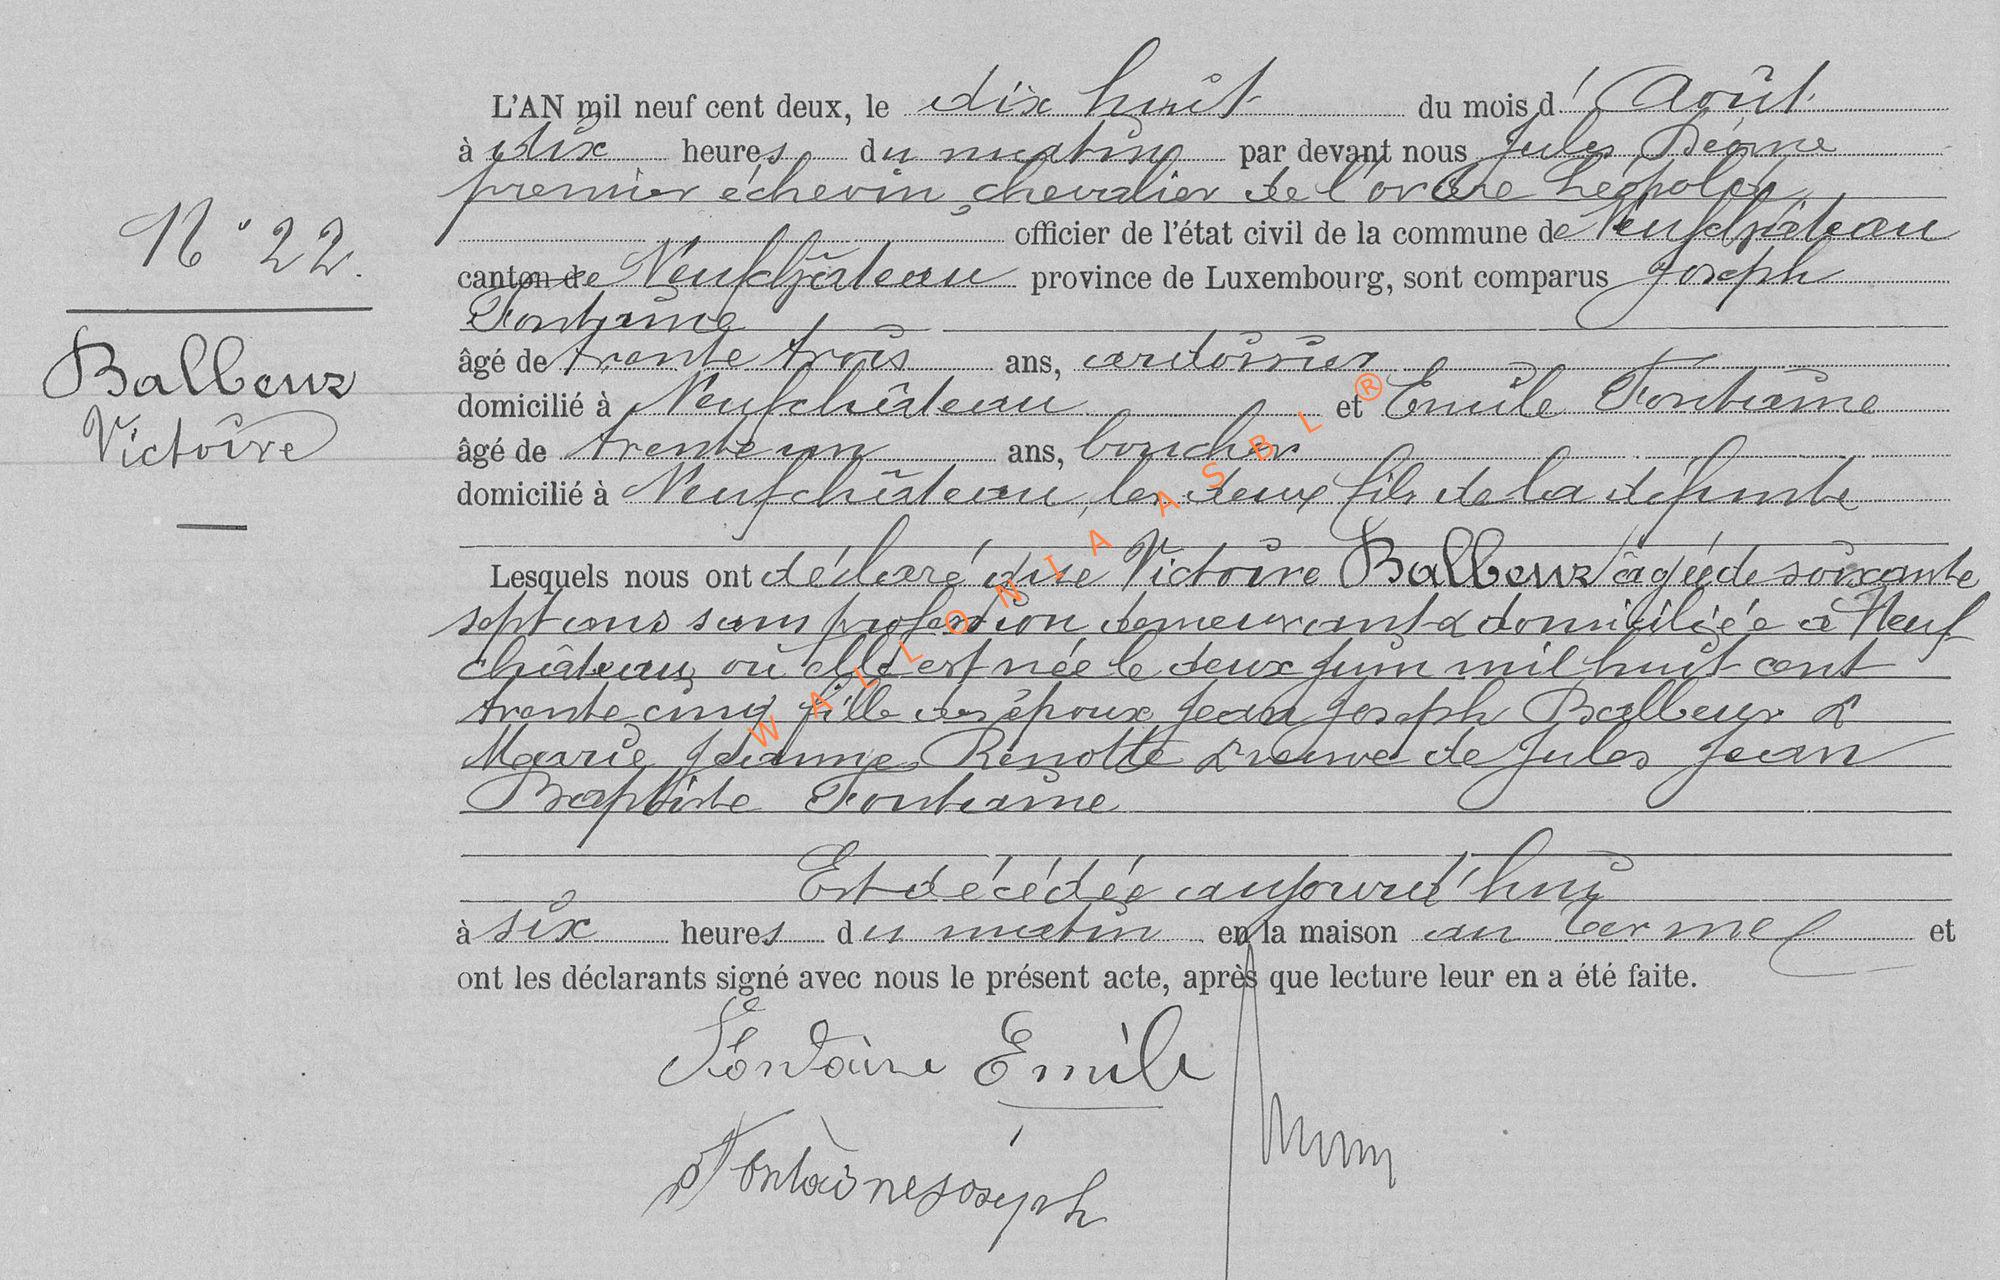 N° 22.
Balbeur
Victoire
L'AN mil neuf cent deux, le dix huit du mois d'Août
à dix heures du matin par devant nous Jules
premier échevin, chevalier de l'ordre Léopold,
officier de l'état civil de la commune de Neufchâteau
canton de Neufchâteau province de Luxembourg, sont comparus Joseph
Fontaine
âgé de trente trois ans, ardoisier
domicilié à Neufchâteau et Emile Fontaine
âgé de trente un ans, boucher
domicilié à Neufchâteau, les deux fils de la défunte
Lesquels nous ont déclaré que Victoire Balbeur âgée de soixante
sept ans sans profession demeurant & domiciliée à Neuf
château, où elle est née le deux juin mil huit cent
trente cinq fille des époux Jean Joseph Balbeur &
Marie Jeanne Renotte & veuve de Jules Jean
Baptiste Fontaine
Est décédée aujourd'hui
à six heures du matin en la maison au Terme et
ont les déclarants signé avec nous le présent acte, après que lecture leur en a été faite.
Fontaine Emile
Fontaine Joseph
WALLONIA ASBL®